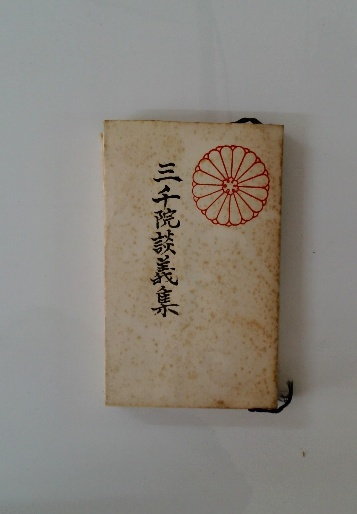 三千院談義集